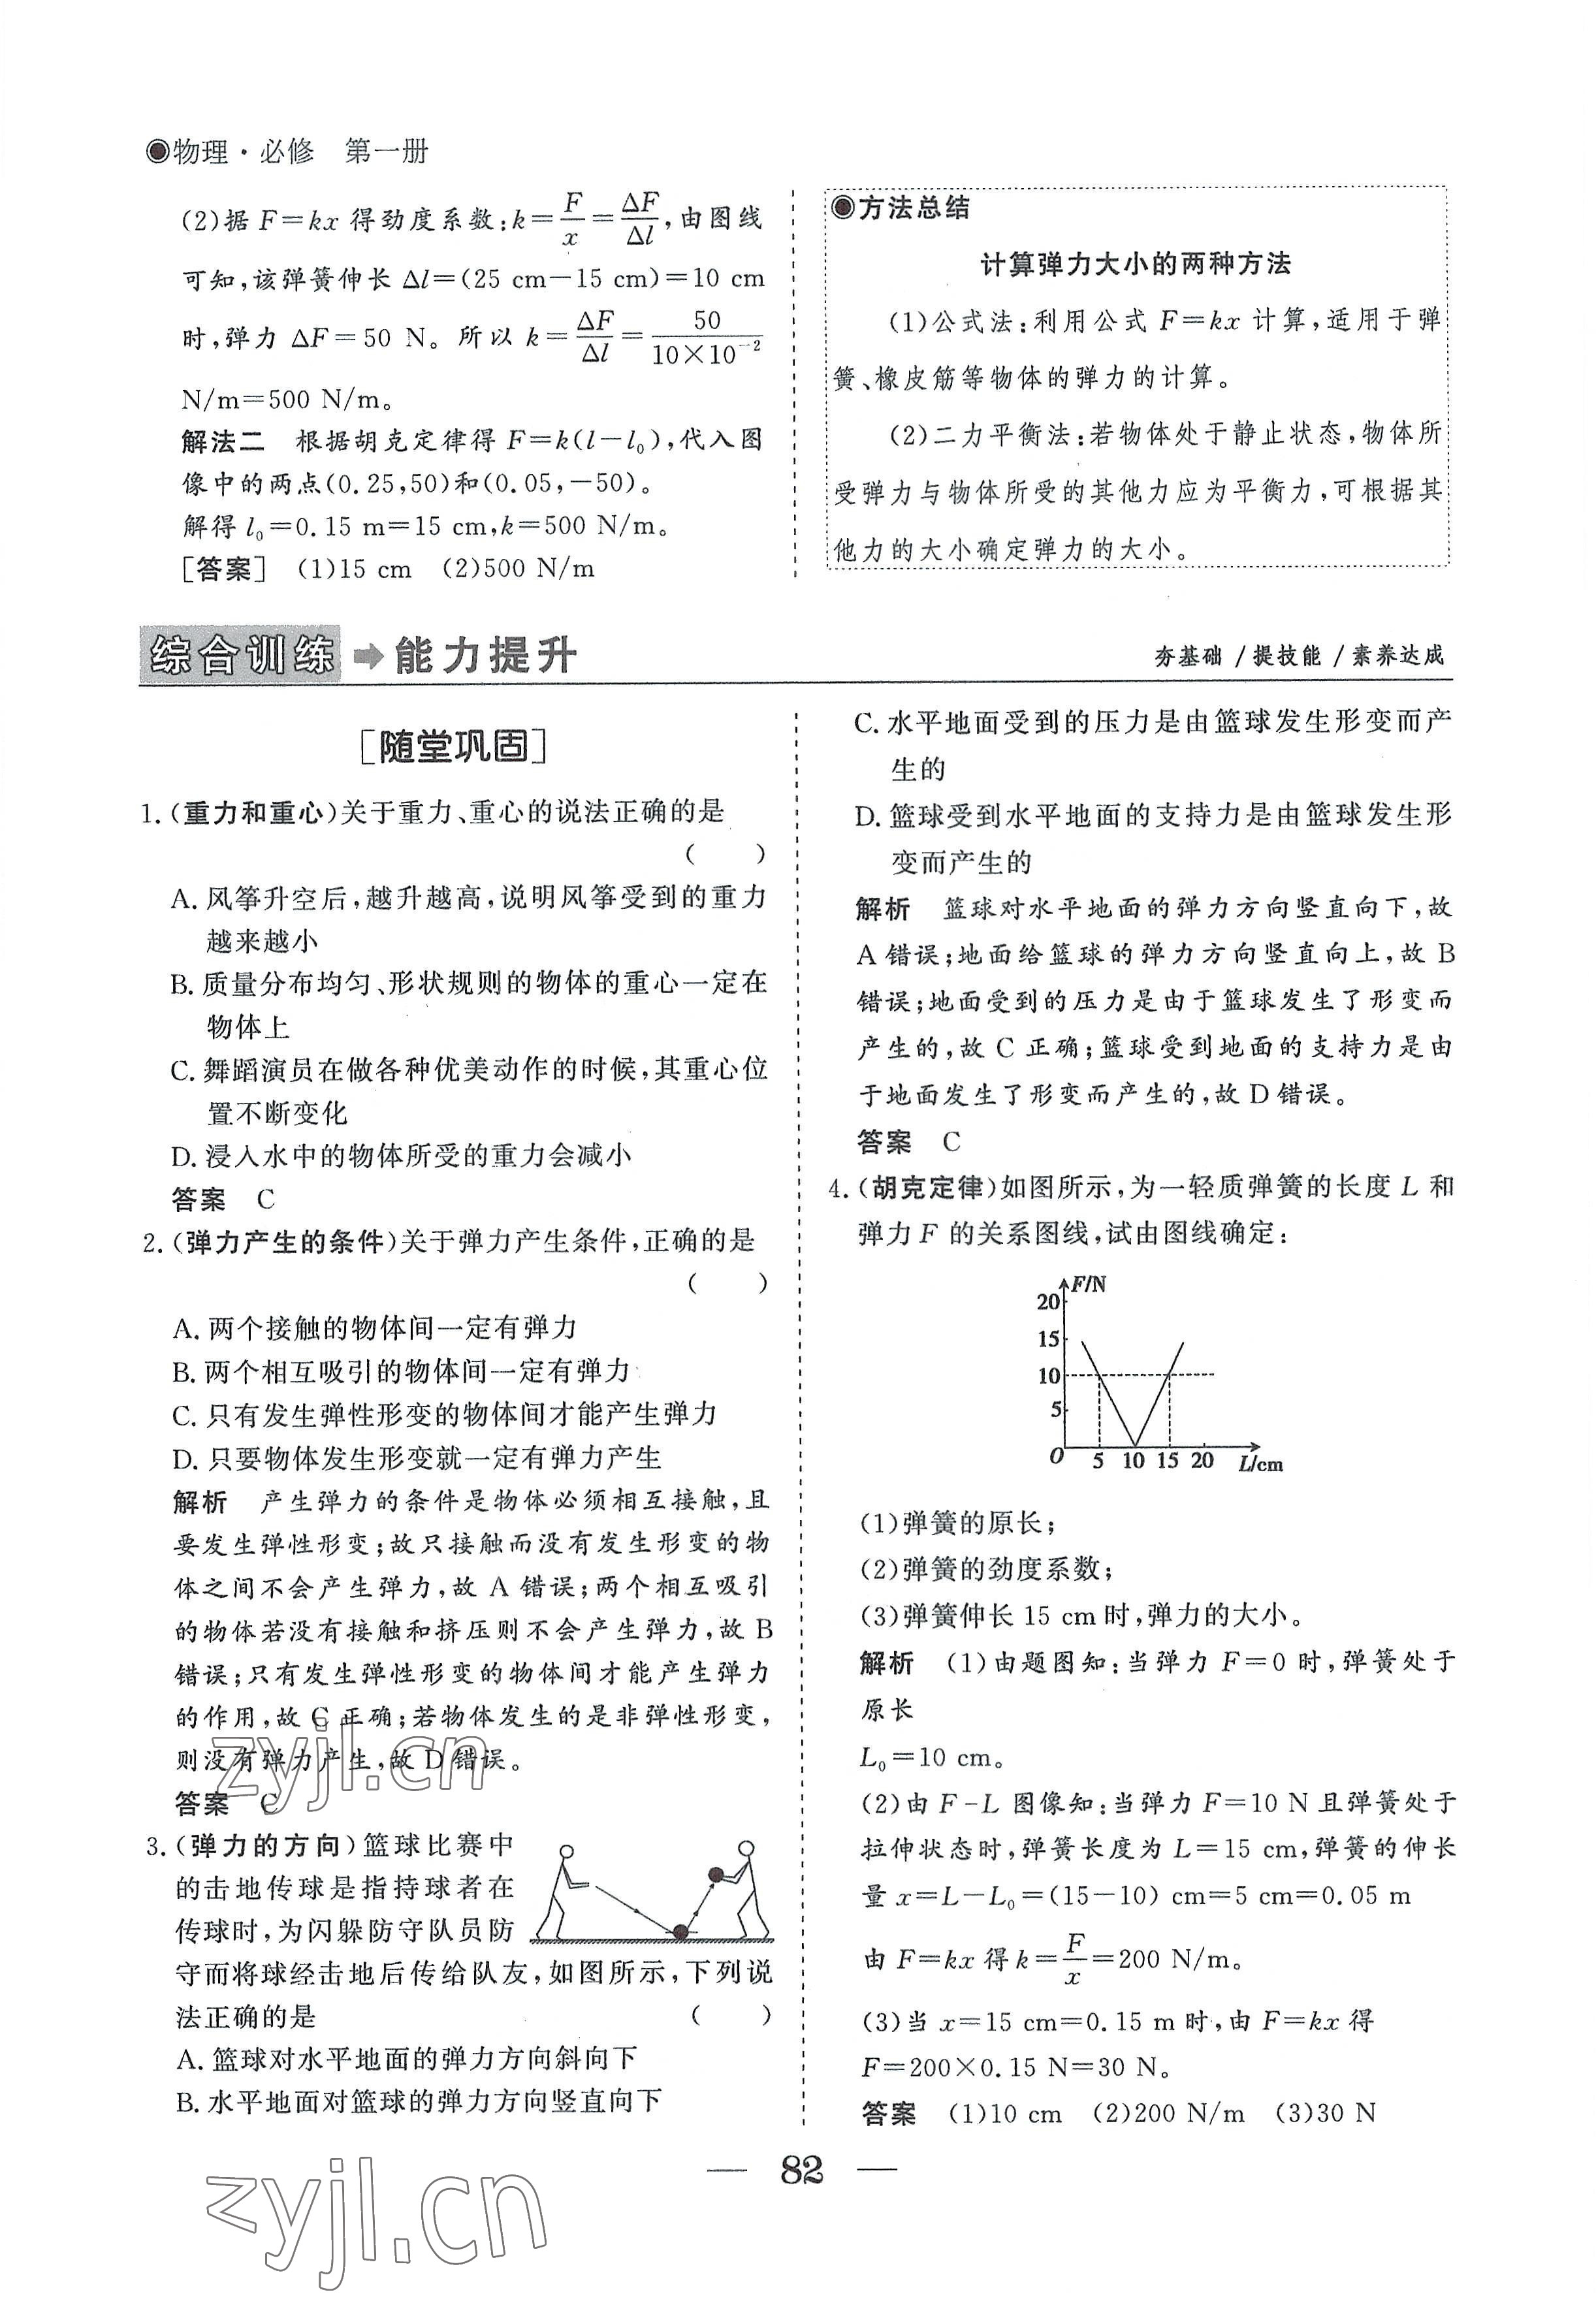 物理·必修 第一册
(2)据 F=kx 得劲度系数:k=F/x=ΔF/Δl,由图线
可知,该弹簧伸长 Δl=(25 cm-15 cm)=10 cm
时,弹力 ΔF=50 N。所以 k=ΔF/Δl=50/(10×10⁻²)
N/m=500 N/m。
解法二 根据胡克定律得 F=k(l-l₀),代入图
像中的两点(0.25,50)和(0.05,-50)。
解得 l₀=0.15 m=15 cm,k=500 N/m。
[答案] (1)15 cm (2)500 N/m
方法总结
计算弹力大小的两种方法
(1)公式法:利用公式 F=kx 计算,适用于弹
簧、橡皮筋等物体的弹力的计算。
(2)二力平衡法:若物体处于静止状态,物体所
受弹力与物体所受的其他力应为平衡力,可根据其
他力的大小确定弹力的大小。
综合训练 能力提升
夯基础 / 提技能 / 素养达成
[随堂巩固]
1.(重力和重心)关于重力、重心的说法正确的是
( )
A.风筝升空后,越升越高,说明风筝受到的重力
越来越小
B.质量分布均匀、形状规则的物体的重心一定在
物体上
C.舞蹈演员在做各种优美动作的时候,其重心位
置不断变化
D.浸入水中的物体所受的重力会减小
答案 C
2.(弹力产生的条件)关于弹力产生条件,正确的是
( )
A.两个接触的物体间一定有弹力
B.两个相互吸引的物体间一定有弹力
C.只有发生弹性形变的物体间才能产生弹力
D.只要物体发生形变就一定有弹力产生
解析 产生弹力的条件是物体必须相互接触,且
要发生弹性形变;故只接触而没有发生形变的物
体之间不会产生弹力,故 A 错误;两个相互吸引
的物体若没有接触和挤压则不会产生弹力,故 B
错误;只有发生弹性形变的物体间才能产生弹力
的作用,故 C 正确;若物体发生的是非弹性形变,
则没有弹力产生,故 D 错误。
答案 C
3.(弹力的方向)篮球比赛中
的击地传球是指持球者在
传球时,为闪躲防守队员防
守而将球经击地后传给队友,如图所示,下列说
法正确的是 ( )
A.篮球对水平地面的弹力方向斜向下
B.水平地面对篮球的弹力方向竖直向下
C.水平地面受到的压力是由篮球发生形变而产
生的
D.篮球受到水平地面的支持力是由篮球发生形
变而产生的
解析 篮球对水平地面的弹力方向竖直向下,故
A 错误;地面给篮球的弹力方向竖直向上,故 B
错误;地面受到的压力是由于篮球发生了形变而
产生的,故 C 正确;篮球受到地面的支持力是由
于地面发生了形变而产生的,故 D 错误。
答案 C
4.(胡克定律)如图所示,为一轻质弹簧的长度 L 和
弹力 F 的关系图线,试由图线确定:
F/N
20
15
10
5
O 5 10 15 20 L/cm
(1)弹簧的原长;
(2)弹簧的劲度系数;
(3)弹簧伸长 15 cm 时,弹力的大小。
解析 (1)由题图知:当弹力 F=0 时,弹簧处于
原长
L₀=10 cm。
(2)由 F-L 图像知:当弹力 F=10 N 且弹簧处于
拉伸状态时,弹簧长度为 L=15 cm,弹簧的伸长
量 x=L-L₀=(15-10) cm=5 cm=0.05 m
由 F=kx 得 k=F/x=200 N/m。
(3)当 x=15 cm=0.15 m 时,由 F=kx 得
F=200×0.15 N=30 N。
答案 (1)10 cm (2)200 N/m (3)30 N
zyjl.cn
zyjl.cn
— 82 —